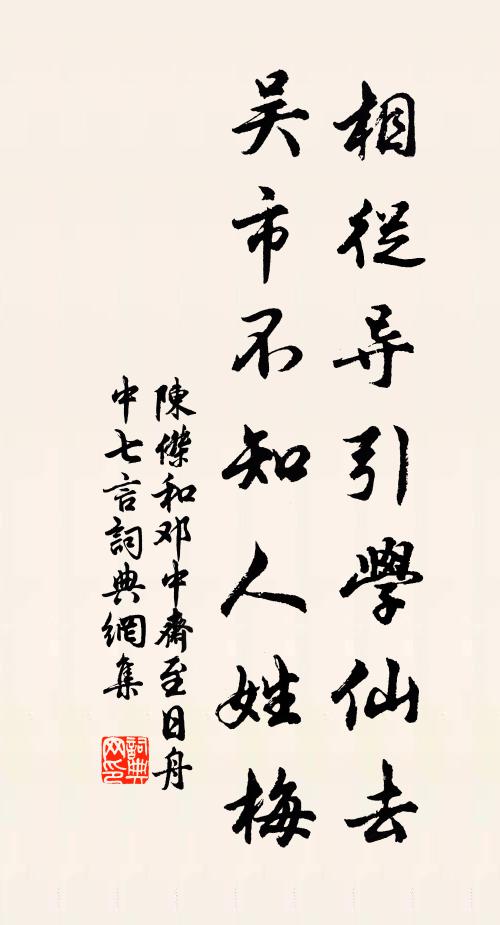 相從导引學仙去
吴市不知人姓梅
陳傑和邓中齋至日舟
中七言詞典網集
詞典网印